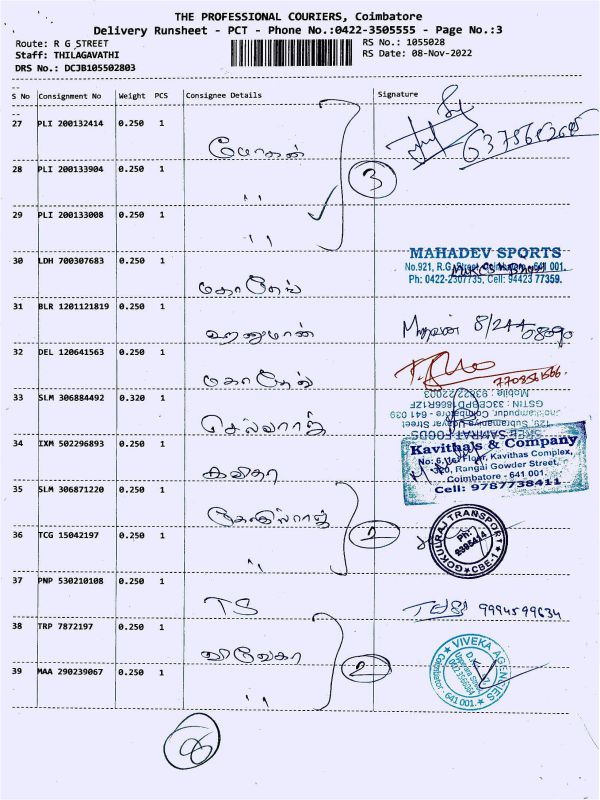 THE PROFESSIONAL COURIERS, Coimbatore
Delivery Runsheet - PCT - Phone No.:0422-3505555 - Page No.:3
Route: R G STREET
RS No.: 1055028
Staff: THILAGAVATHI
RS Date: 08-Nov-2022
DRS No.: DCJB105502803
S No Consignment No Weight PCS Consignee Details Signature
27 PLI 200132414 0.250 1 மோகன்
28 PLI 200133904 0.250 1 ,,
3
29 PLI 200133008 0.250 1 ,,
30 LDH 700307683 0.250 1 மகாதேவ்
MAHADEV SPORTS
No.921, R.G. Street, Coimbatore - 641 001.
Ph: 0422-2307735, Cell: 94423 77359.
31 BLR 1201121819 0.250 1 ஹனுமான்
32 DEL 120641563 0.250 1 மகாதேவ்
7708561566
33 SLM 306884492 0.320 1 செல்வராஜ்
129, Subramaniya Udayar Street
SREE SAMRAT FOODS
34 IXM 502296893 0.250 1 கவிதா
Kavithals & Company
Floor, Kavithas Complex,
320, Rangai Gowder Street,
Coimbatore - 641 001.
Cell: 9787738411
35 SLM 306871220 0.250 1
2
36 TCG 15042197 0.250 1 ,,
GOKULRAJ TRANSPORT
Ph:
CBE-1
37 PNP 530210108 0.250 1 TS
9994599634
38 TRP 7872197 0.250 1 விவேகா
2
VIVEKA AGENCIES
Coimbatore - 641 001.
39 MAA 290239067 0.250 1 ,,